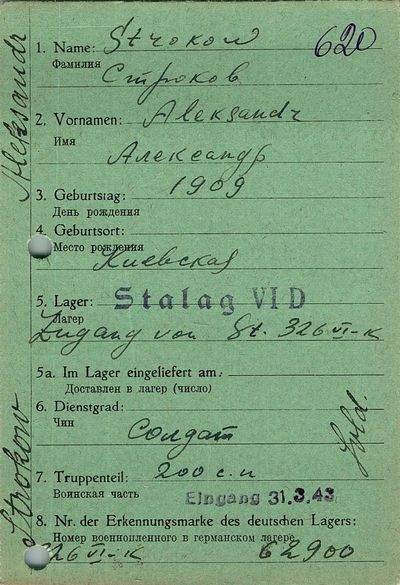 620
1. Name: Strokow
Фамилия
Строков
2. Vornamen: Aleksandr
Имя
Александр
3. Geburtstag: 1909
День рождения
4. Geburtsort:
Место рождения
Киевская
5. Lager: Stalag VI D
Лагер
Zugang von St. 326 VI-K
5a. Im Lager eingeliefert am:
Доставлен в лагер (число)
6. Dienstgrad:
Чин
Солдат
Sold.
7. Truppenteil: 200 с.п
Воинская часть
Eingang 31.3.43
8. Nr. der Erkennungsmarke des deutschen Lagers:
Номер военнопленного в германском лагере
326 VI-K 62900
Strokow Aleksandr